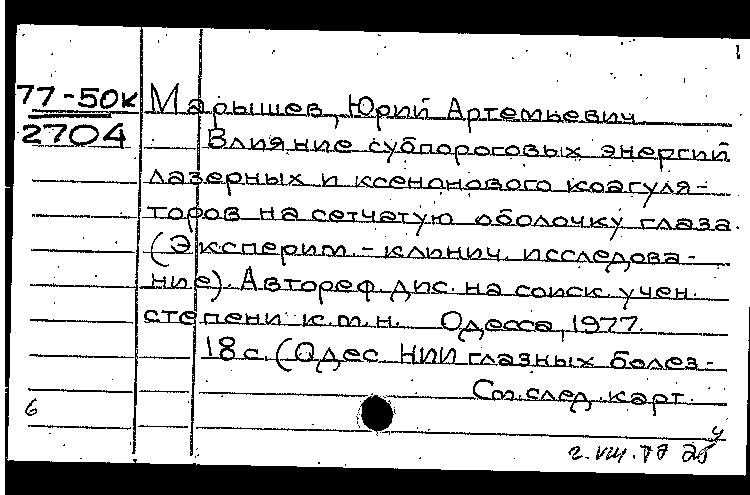 1
77-50к Марышев, Юрий Артемьевич
2704 Влияние субпороговых энергий
лазерных и ксенонового коагуля-
торов на сетчатую оболочку глаза.
(Эксперим.-клинич. исследова-
ние). Автореф. дис. на соиск. учен.
степени к.м.н. Одесса, 1977.
18 с. (Одес. НИИ глазных болез-
См. след. карт.
6